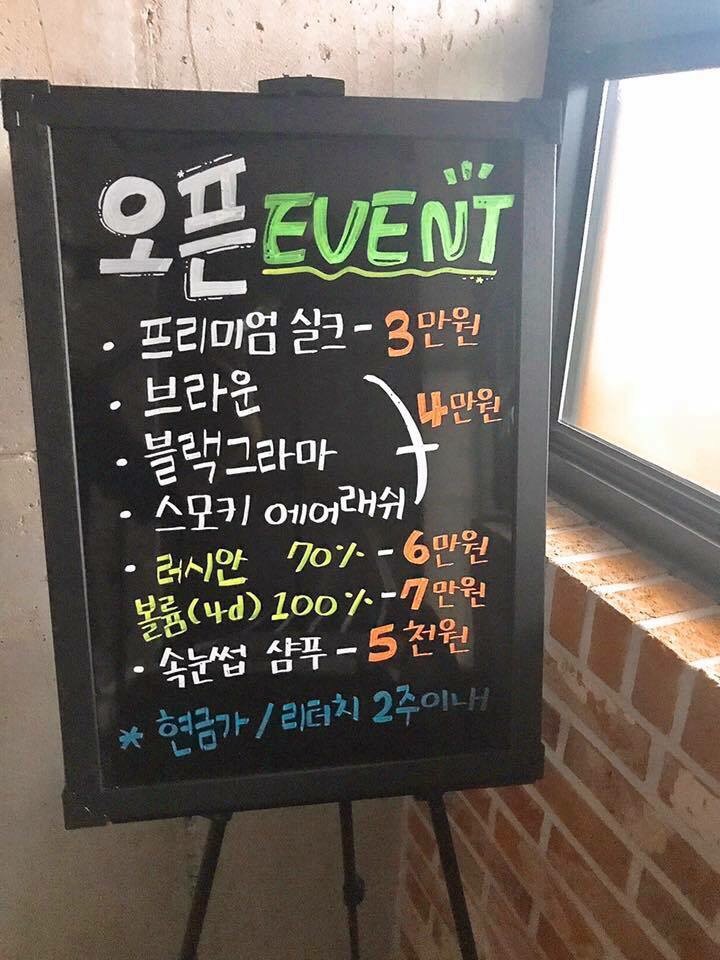 오픈 EVENT
· 프리미엄 실크 - 3만원
· 브라운
4만원
· 블랙그라마
· 스모키 에어래쉬
· 러시안 70% - 6만원
볼륨(4d) 100% - 7만원
· 속눈썹 샴푸 - 5천원
* 현금가 / 리터치 2주이내